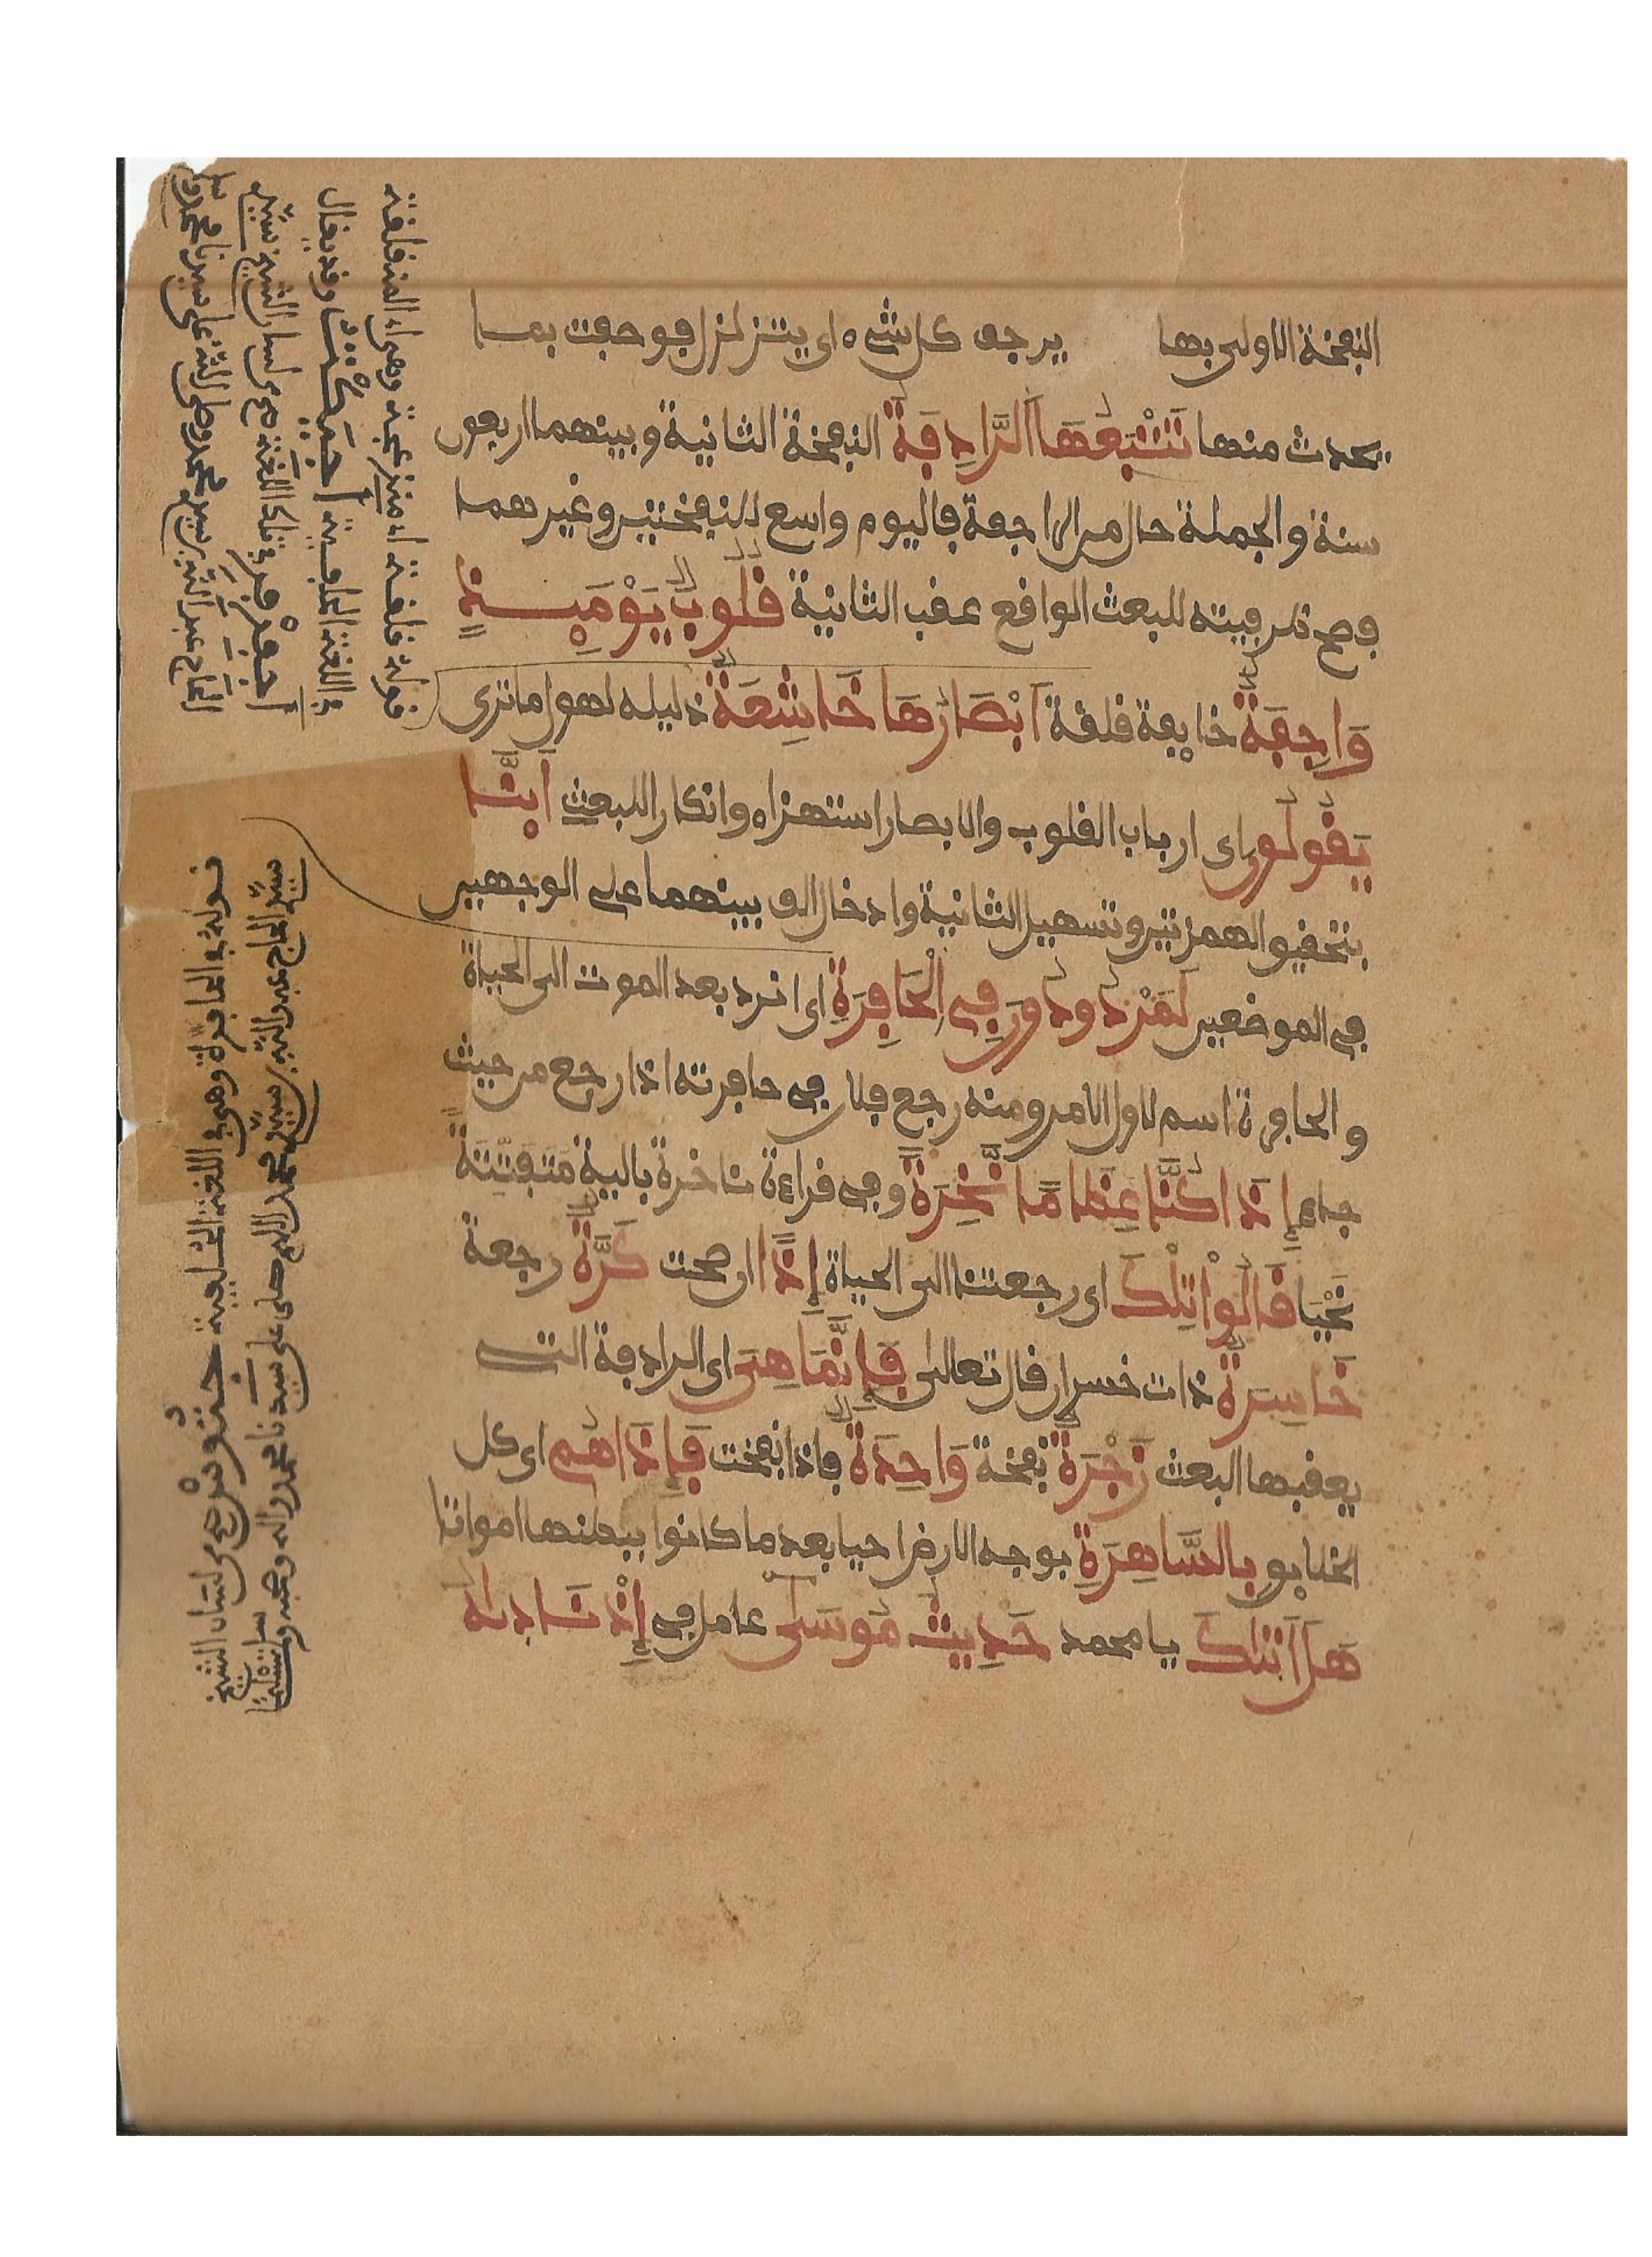 النفخة الاولى بها يرجف كل شىء اى يتزلزل فوصفت بما
يحدث منها تَتْبَعُهَا الرَّادِفَةُ النفخة الثانية وبينهما اربعون
سنة والجملة حال من الراجفة فاليوم واسع للنفختين وغيرهما
فصح ظرفيته للبعث الواقع عقب الثانية قُلُوبٌ يَوْمَئِذٍ
وَاجِفَةٌ خايفة قلقة اَبْصَارُهَا خَاشِعَةٌ ذليله لهول ما ترى
يَقُولُونَ اى ارباب القلوب والابصار استهزاء وانكارا للبعث اَئنَّا
بتحقيق الهمزتين وتسهيل الثانية وادخال الف بينهما على الوجهين
فى الموضعين لَمَرْدُودُونَ فِى الْحَافِرَةِ اى انرد بعد الموت الى الحياة
والحافرة اسم لاول الامر ومنه رجع فلان فى حافرته اذا رجع من حيث
جاء إِذَا كُنَّا عِظَامًا نَّخِرَةً وفى قراءة ناخرة بالية مَتَفَتِّتَةً
نُحْيَا قَالُواْ تِلْكَ اى رجعتنا الى الحياة إِذًا ان صحت كَرَّةٌ رجعة
خَاسِرَةٌ ذات خسران قال تعالى فَإِنَّمَا هِىَ اى الرادفة التى
يعقبها البعث زَجْرَةٌ نفخة وَاحِدَةٌ فاذا نفخت فَإِذَا هُم اى كل
الخلايق بِالسَّاهِرَةِ بوجه الارض احيا بعد ما كانوا ببطنها امواتا
هَلْ اَتَيٰكَ يا محمد حَدِيثُ مُوسَىٰ عامل فى إِذْ نَادَيٰهُ
قوله قلقة اى منزعجة وهى المقلقة
فى اللغة
قوله فى الحافرة وهى فى اللغة من لسان الشيخ
سيد الحاج عبد الله بن سيد محمد اللهم صلى على سيدنا محمد واله وصحبه وسلم تسليما